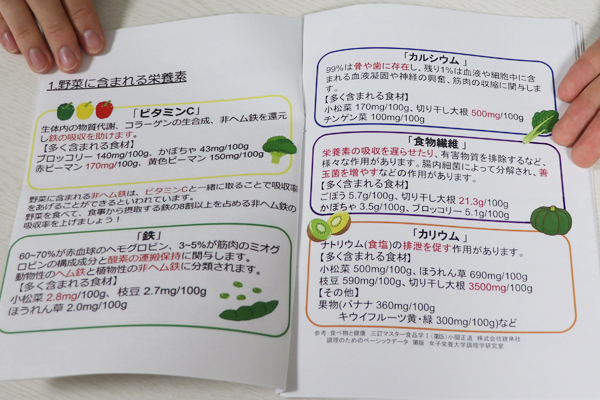 1.野菜に含まれる栄養素
「ビタミンC」
生体内の物質代謝、コラーゲンの生合成、非ヘム鉄を還元
し鉄の吸収を助けます。
【多く含まれる食材】
ブロッコリー 140mg/100g、かぼちゃ 43mg/100g
赤ピーマン 170mg/100g、黄色ピーマン 150mg/100g
野菜に含まれる非ヘム鉄は、ビタミンCと一緒に取ることで吸収率
をあげることができるといわれています。
野菜を食べて、食事から摂取する鉄の8割以上を占める非ヘム鉄の
吸収率を上げましょう!
「鉄」
60~70%が赤血球のヘモグロビン、3~5%が筋肉のミオグ
ロビンの構成成分と酸素の運搬保持に関与します。
動物性のヘム鉄と植物性の非ヘム鉄に分類されます。
【多く含まれる食材】
小松菜 2.8mg/100g、枝豆 2.7mg/100g
ほうれん草 2.0mg/100g
「カルシウム」
99%は骨や歯に存在し、残り1%は血液や細胞中に含
まれる血液凝固や神経の興奮、筋肉の収縮に関与しま
す。
【多く含まれる食材】
小松菜 170mg/100g、切り干し大根 500mg/100g
チンゲン菜 100mg/100g
「食物繊維」
栄養素の吸収を遅らせたり、有害物質を排除するなど、
様々な作用があります。腸内細菌によって分解され、善
玉菌を増やすなどの作用があります。
【多く含まれる食材】
ごぼう 5.7g/100g、切り干し大根 21.3g/100g
かぼちゃ 3.5g/100g、ブロッコリー 5.1g/100g
「カリウム」
ナトリウム(食塩)の排泄を促す作用があります。
【多く含まれる食材】
小松菜 500mg/100g、ほうれん草 690mg/100g
枝豆 590mg/100g、切り干し大根 3500mg/100g
【その他】
果物(バナナ 360mg/100g
キウイフルーツ黄・緑 300mg/100g)など
参考:食べ物と健康 三訂マスター食品学Ⅰ(第版)小関正道 株式会社建帛社
調理のためのベーシックデータ 第版 女子栄養大学調理学研究室